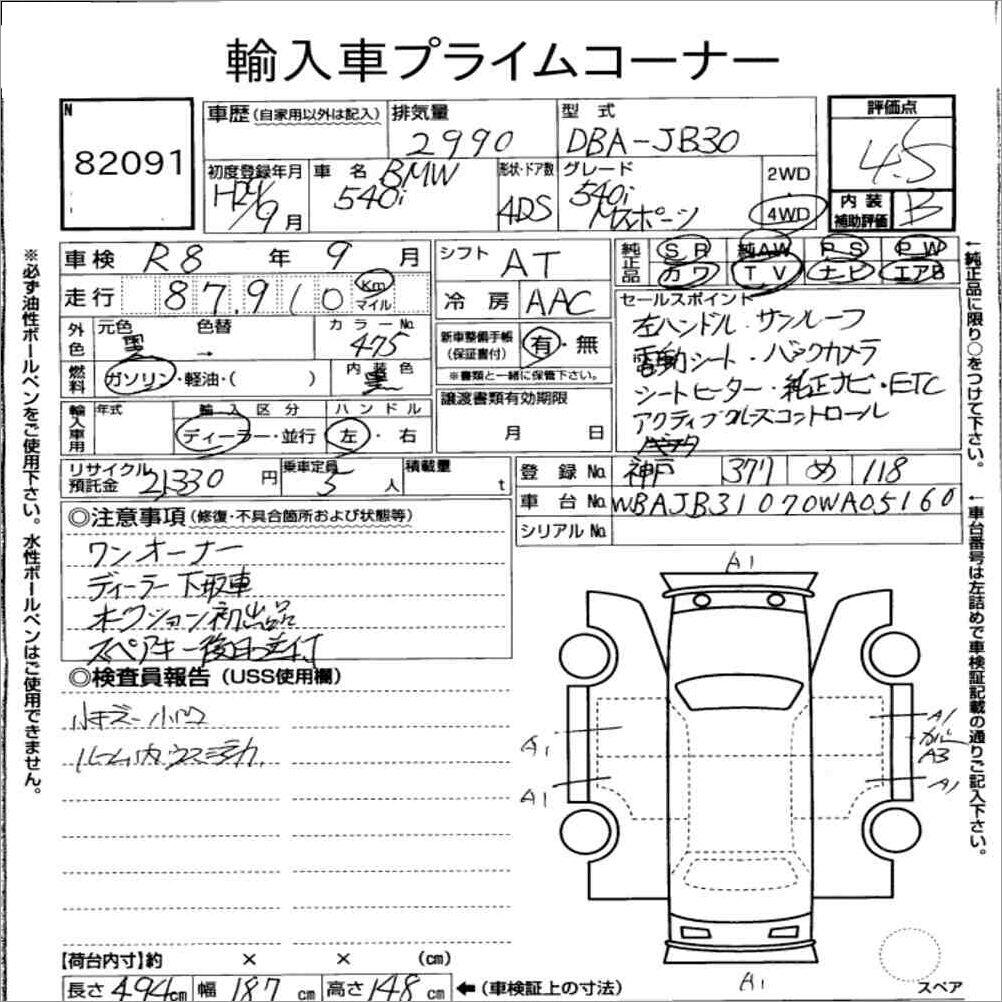 輸入車プライムコーナー
N
82091
車歴(自家用以外は記入)
排気量
2990
型 式
DBA-JB30
評価点
4.5
初度登録年月
9月
車 名
BMW
540i
形状・ドア数
4DS
グレード
540i
Mスポーツ
2WD
4WD
内 装
補助評価
B
車検 R8 年 9 月
走行 87,910 Km マイル
シフト AT
冷 房 AAC
純正品
SR 純AW PS PW
カワ TV ナビ エアB
外色
元色 黒
色替 →
カラーNo. 475
燃料
ガソリン・軽油・( )
内装色 黒
新車整備手帳
(保証書付)
有・無
※書類と一緒に保管下さい。
セールスポイント
左ハンドル・サンルーフ
電動シート・バックカメラ
シートヒーター・純正ナビ・ETC
アクティブクルーズコントロール
輸入車用
年式
輸 入 区 分
ディーラー・並行
ハ ン ド ル
左・右
譲渡書類有効期限
月 日
リサイクル
預託金
21,330 円
乗車定員
5 人
積載量
t
登 録 No. 神戸 377 め 118
車 台 No. WBAJB31070WA05160
シリアル No.
◎注意事項(修復・不具合箇所および状態等)
ワンオーナー
ディーラー下取車
オークション初出品
スペアキー後日送付
◎検査員報告(USS使用欄)
小キズ・小凹
ルーム内ウス汚れ
A1
A1
A1
A1
カバー
A3
A1
A1
スペア
【荷台内寸】約 × × (cm)
長さ 494cm 幅 187cm 高さ 148cm ←(車検証上の寸法)
※必ず油性ボールペンをご使用下さい。水性ボールペンはご使用できません。
↑純正品に限り○をつけて下さい。
↑車台番号は左詰めで車検証記載の通りご記入下さい。